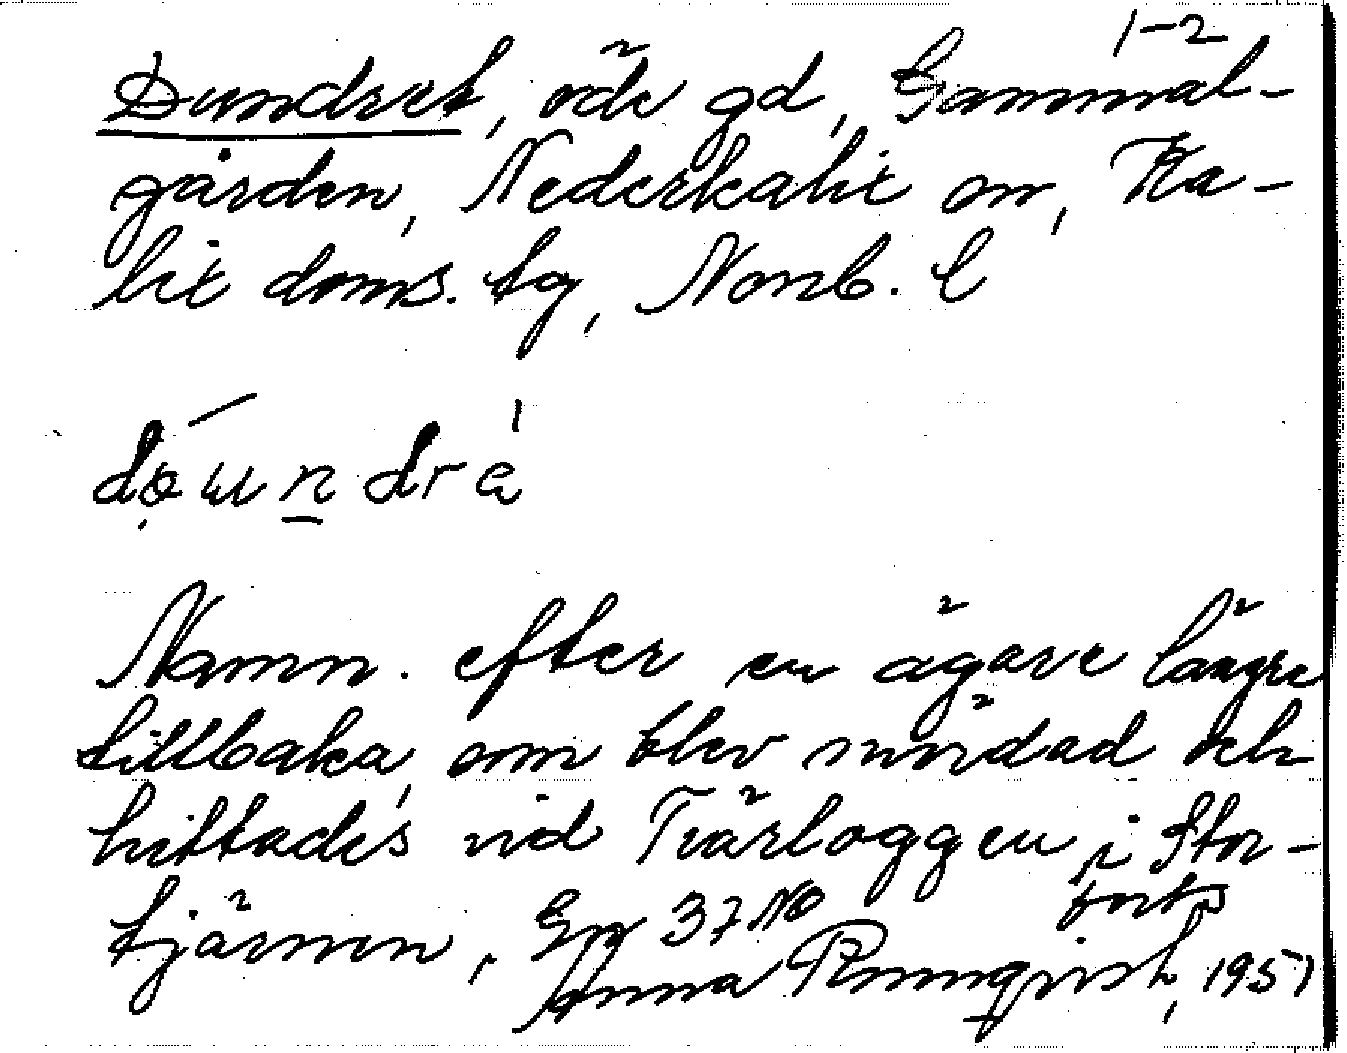 1-2
Dundret, öde gd, Gammal-
gården, Nederkalix sn, Ka-
lix doms. tg, Norrb. l
Namn. efter en ägare längre
tillbaka, som blev mördad och
hittades vid Tvärloggen i Stor-
tjärnen, Gr 37 NO forts
Anna Rönnqvist, 1951